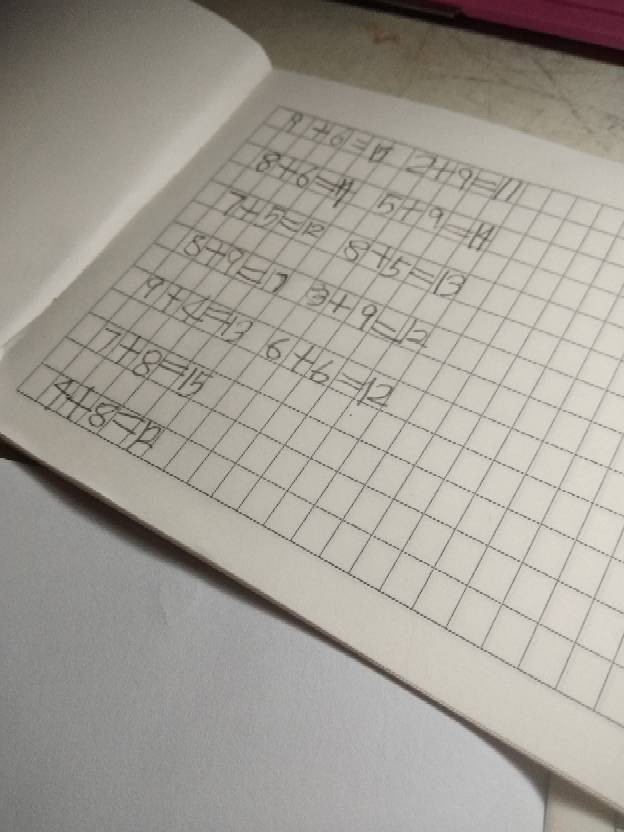 9+6=15 2+9=11
8+6=14 5+9=14
7+5=12 8+5=13
8+9=17 3+9=12
9+4=13 6+6=12
7+8=15
4+8=12